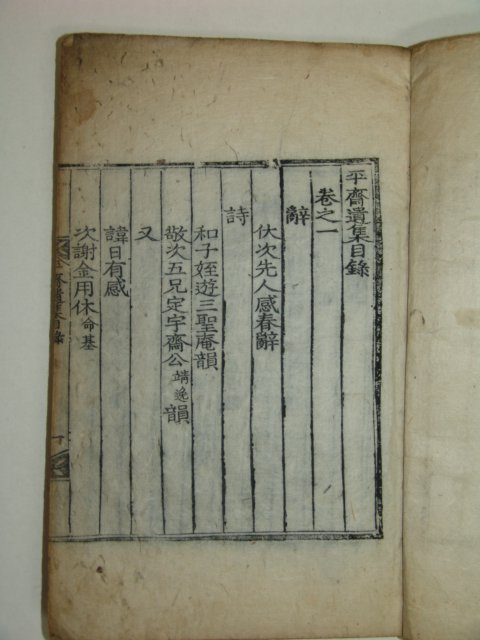 平齋遺集目錄
卷之一
辭
伏次先人感春辭
詩
和子姪遊三聖庵韻
敬次五兄定宇齋公靖逸韻
又
諱日有感
次謝金用休命基
平齋遺集目錄